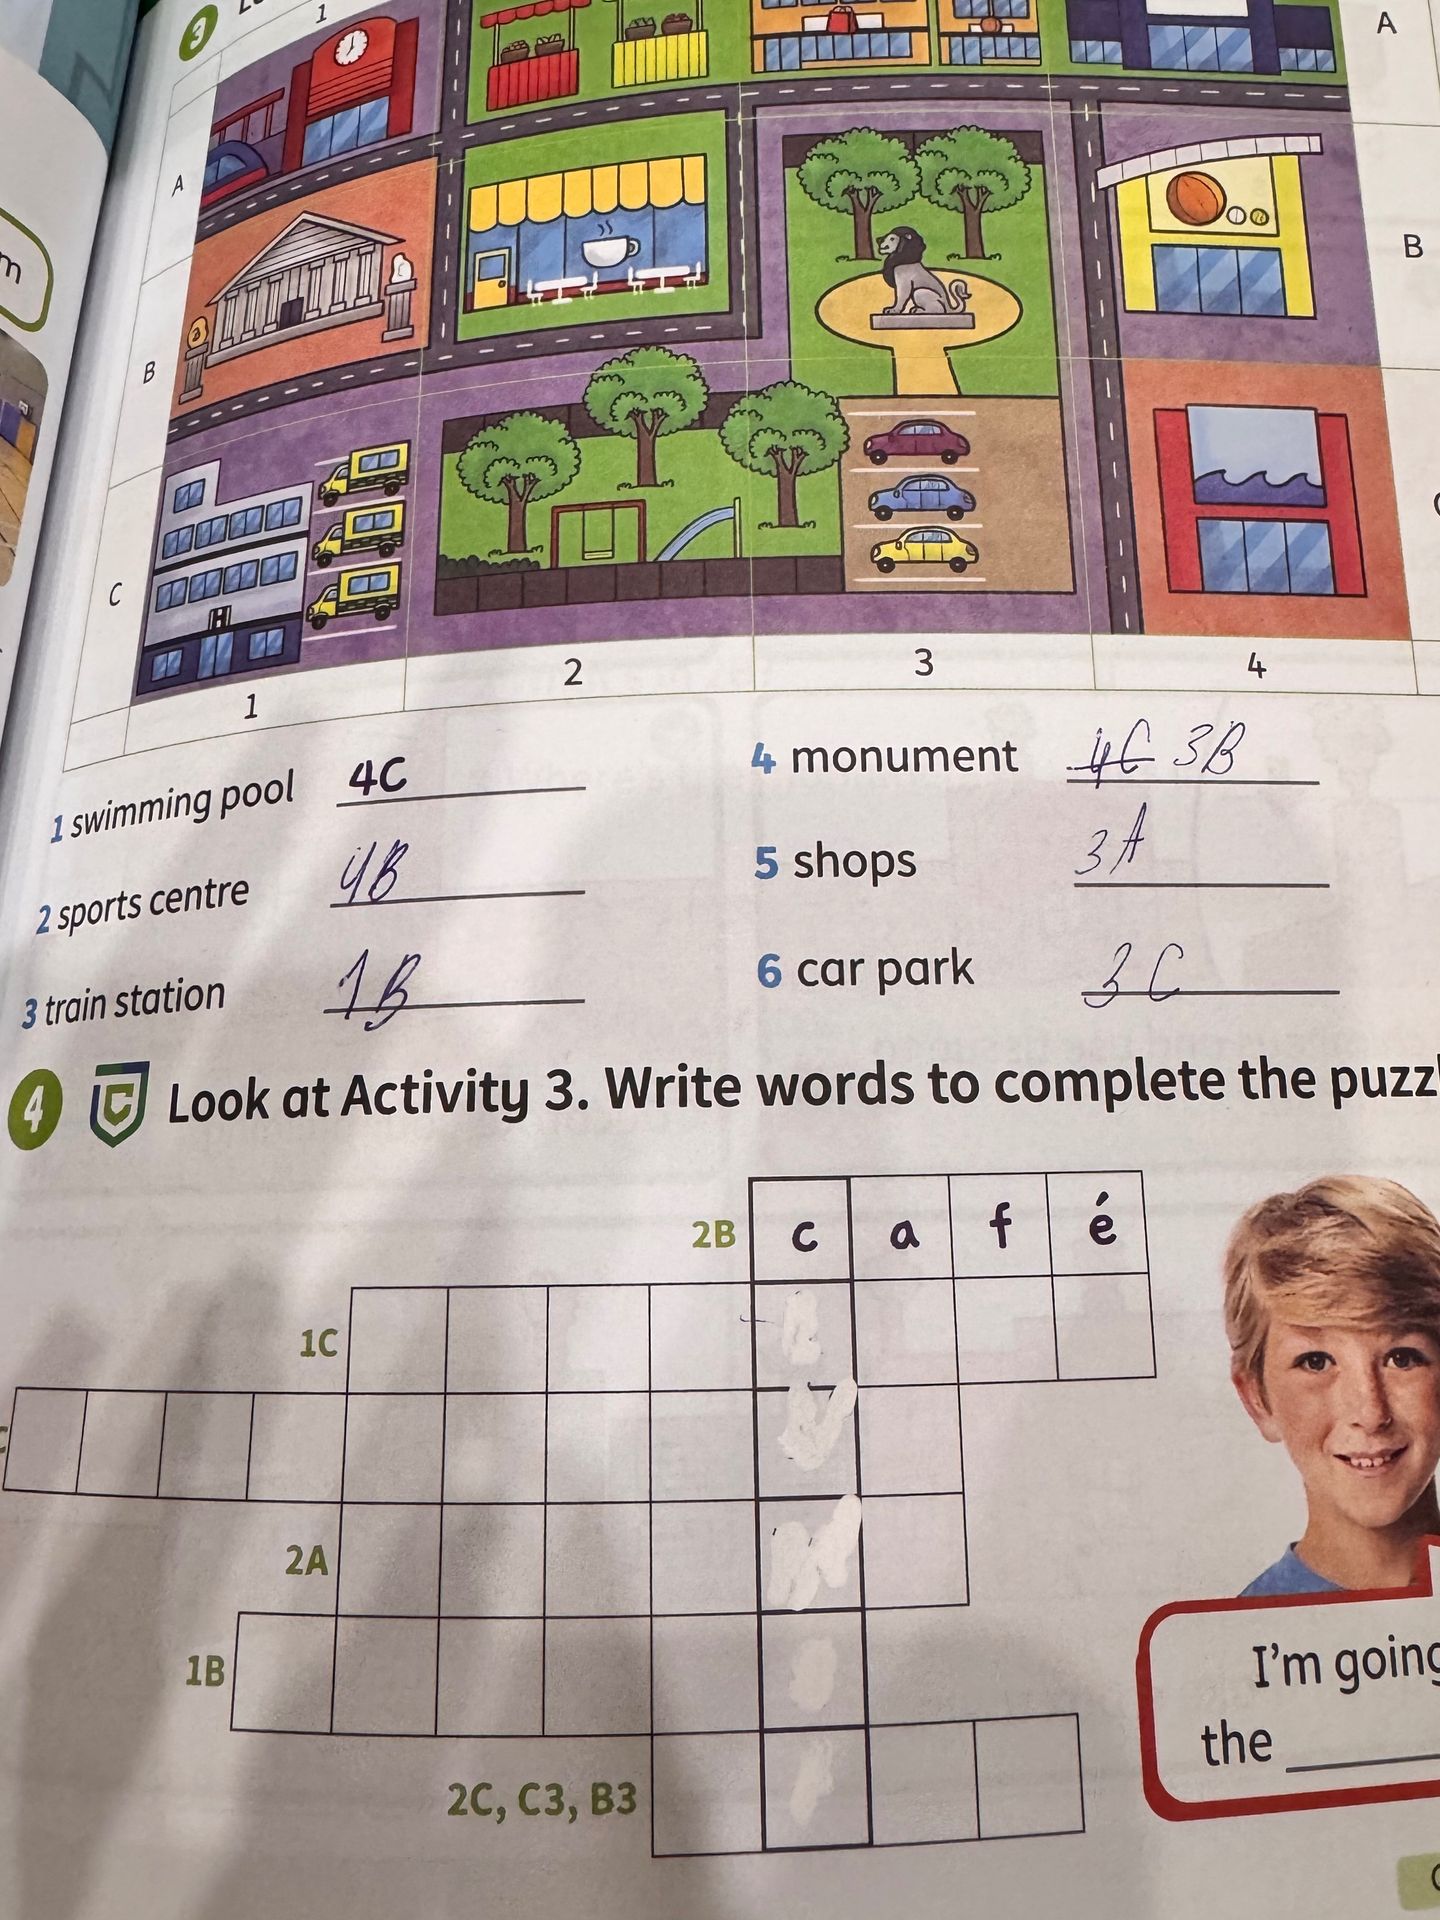 3
1
A
A
B
B
C
1
2
3
4
1 swimming pool 4C
4 monument 4C 3B
2 sports centre 4B
5 shops 3A
3 train station 1B
6 car park 3C
4 C Look at Activity 3. Write words to complete the puzz
2B c a f é
1C
2A
1B
2C, C3, B3
I'm going
the